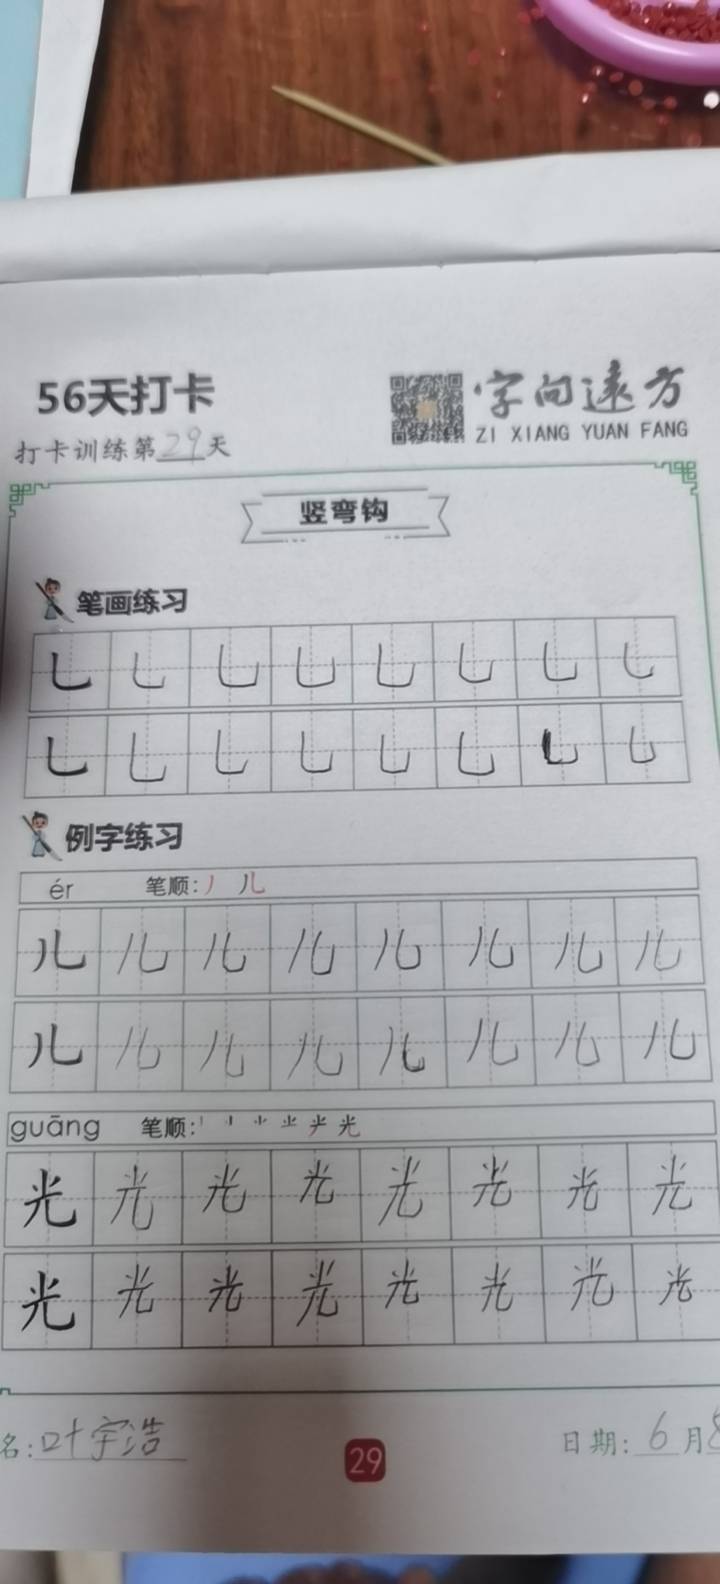 56天打卡
字向远方
ZI XIANG YUAN FANG
打卡训练第29天
竖弯钩
笔画练习
乚 乚 乚 乚 乚 乚 乚 乚
乚 乚 乚 乚 乚 乚 乚 乚
例字练习
ér 笔顺:丿 儿
儿 儿 儿 儿 儿 儿 儿 儿
儿 儿 儿 儿 儿 儿 儿 儿
guāng 笔顺: 光
光 光 光 光 光 光 光 光
光 光 光 光 光 光 光 光
名:叶宇浩
29
日期:6月8